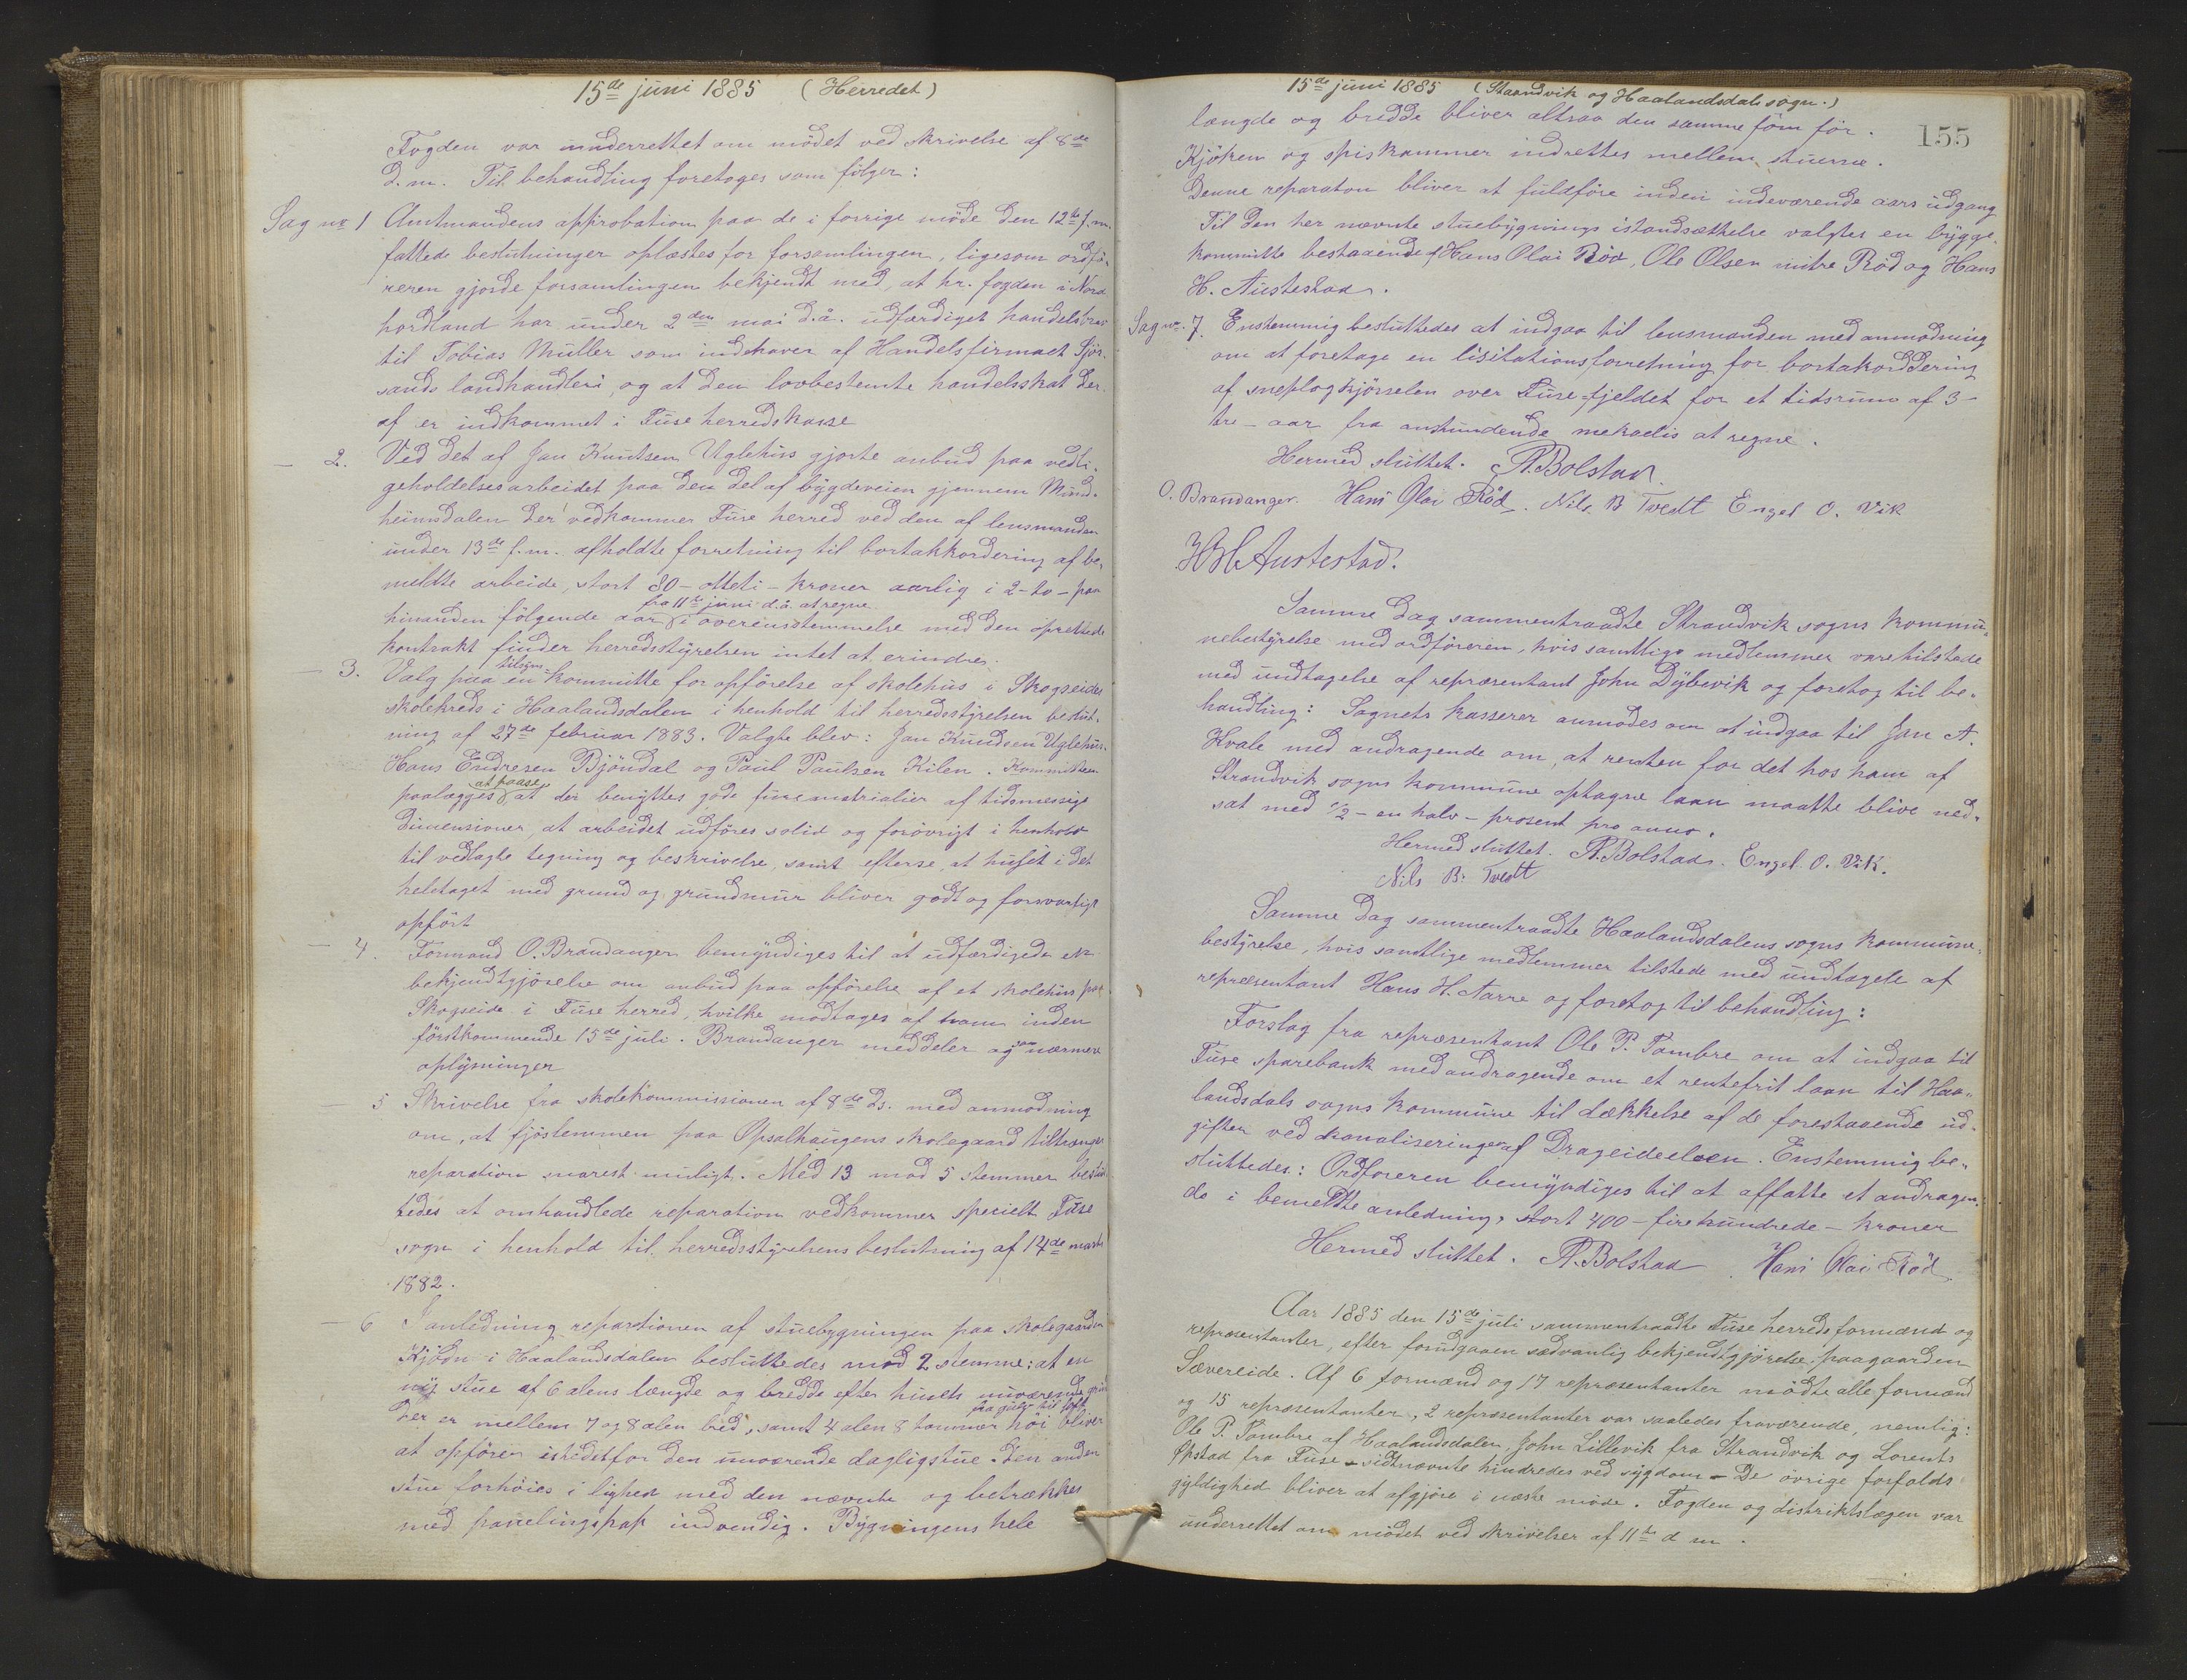 15de juni 1885 (Herredet)
Fogden var underrettet om mødet ved skrivelse af 8de
d.m. Til behandling foretoges som følger:
Sag nr 1 Amtmandens approbation paa de i forrige møde den 12te f.m.
fattede beslutninger oplæstes for forsamlingen, ligesom ordfø-
reren gjorde forsamlingen bekjendt med, at hr. fogden i Nord
hordland har under 2den mai d.å. udfærdiget handelsbrev
til Tobias Müller som indehaver af Handelsfirmaet Sjør-
sands landhandleri, og at den lovbestemte handelsskat der-
af er indkommet i Fuse herredskasse
— 2. Ved det af Jan Knutsen Uglehus gjorte anbud paa vedli-
geholdelsesarbeidet paa den del af bygdeveien gjennem Mund-
heimsdalen der vedkommer Fuse herred ved den af lensmanden
under 13de f.m. afholdte forretning til bortakkordering af be-
meldte arbeide, stort 80 – otteti – kroner aarlig i 2 – to – paa
fra 11te juni d.å. at regne
hinanden følgende aar i overensstemmelse med den oprettede
kontrakt finder herredsstyrelsen intet at erindre.
tilsyns-
— 3. Valg paa en kommitte for opførelse af skolehus i Skogseide
skolekreds i Haalandsdalen i henhold til herredsstyrelsen beslut-
ning af 27de februar 1883. Valgte blev: Jan Knudsen Uglehus,
Hans Endresen Bjöndal og Poul Poulsen Kilen. Kommitteen
at paase
paalægges at der benyttes gode furematrialier af tidsmessige
dimensioner, at arbeidet udføres solid og forøvrigt i henhold
til vedlagte tegning og beskrivelse, samt efterse, at huset i det
heletaget med grund og grundmur bliver godt og forsvarligt
opført
— 4. Formand O. Brandanger bemyndiges til at udfærdigede en
bekjendtgjørelse om anbud paa opførelse af et skolehus paa
Skogseide i Fuse herred, hvilke modtages af ham inden
førstkommende 15de juli. Brandanger meddeler ogsaa nærmere
oplysninger
— 5 Skrivelse fra skolekommissionen af 8de ds. med anmodning
om, at fjöslemmen paa Opsalhaugens skolegaard tiltrænger
reparation snarest muligt. Med 13 mod 5 stemmer beslut-
tedes at omhandlede reparation vedkommer specielt Fuse
sogn i henhold til herredsstyrelsens beslutning af 14de marts
1882.
— 6 I anledning reparationen af stuebygningen paa skolegaarden
Kjödn i Haalandsdalen besluttedes mod 2 stemme: at en
ny stue af 6 alens længde og bredde efter husets nuværende
fra gulv til loft
der er mellem 7 og 8 alen bred, samt 4 alen 8 tommer høi bliver
at opføren istedetfor den nuværende dagligstue. Den anden
stue forhøies i lighed med den nævnte og betrækkes
med panelingspap indvendig. Bygningens hele
15de juni 1885 (Strandvik og Haalandsdals sogn.)
155
længde og bredde bliver altsaa den samme som før.
Kjøken og spiskammer indrettes mellem stuerne.
Denne reparation bliver at fuldføre inden indeværende aars udgang
Til den her nævnte stuebygnings istandsættelse valgtes en bygge-
kommitte bestaaende af Hans Olai Röd, Ole Olsen nitre Röd og Hans
H. Austestad.
Sag nr. 7. Enstemmig besluttedes at indgaa til lensmanden med anmodning
om at foretage en lisitationsforretning for bortakordering
af sneplogkjørselen over Fuse-fjeldet for et tidsrum af 3 –
tre – aar fra anstundende mekaelis at regne.
Hermed sluttet. A. Bolstad
O. Brandanger. Hans Olai Röd. Nils B Tvedt Engel O. Vik
H H Austestad.
Samme dag sammentraadte Strandvik sogns kommu-
nebestyrelse med ordføreren, hvis samtlige medlemmer vare tilstede
med undtagelse af repræsentant John Dybevik og foretog til be-
handling: Sognets kasserer anmodes om at indgaa til Jan A.
Kvale med andragende om, at renten for det hos ham af
Strandvik sogns kommune optagne laan maatte blive ned-
sat med ½ – en halv – prosent pro anno.
Hermed sluttet. A. Bolstad. Engel O. Vik.
Nils B. Tvedt
Samme dag sammentraadte Haalandsdalens sogns kommune-
bestyrelse, hvis samtlige medlemmer tilstede med undtagele af
repræsentant Hans H. Tarre og foretog til behandling:
Forslag fra repræsentant Ole P. Tombre om at indgaa til
Fuse sparebank med andragende om et rentefrit laan til Haa-
landsdals sogns kommune til dækkelse af de forestaaende ud-
gifter ved kanaliseringen af Drageideelven. Enstemmig be-
sluttedes: Ordføreren bemyndiges til at affatte et andragen-
de i bemeldte anledning, stort 400 – firehundrede – kroner
Hermed sluttet. A. Bolstad Hans Olai Röd
Aar 1885 den 15de juli sammentraadte Fuse herreds formænd og
repræsentanter, efter forudgaaen sædvanlig bekjendtgjørelse paa gaarden
Sævereide. Af 6 formænd og 17 repræsentanter mødte alle formænd
og 15 repræsentanter, 2 repræsentanter var saaledes fraværende, nemlig:
Ole P. Tombre af Haalandsdalen, John Lillevik fra Strandvik og Lorents
Opstad fra Fuse – sidtnævnte hindredes ved sygdom – De øvrige forfalds
gyldighed bliver at afgjøre i næste møde. Fogden og distriktslægen var
underrettet om mødet ved skrivelser af 11te d m.